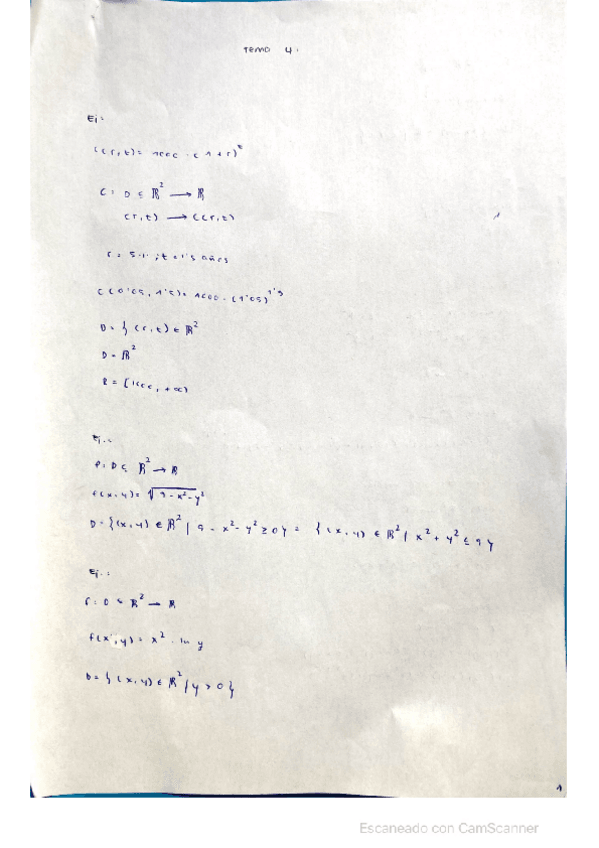 Tema 4.
Ej:
C(r,t)= 1000 · (1+r)^t
C: D ⊆ ℝ² → ℝ
(r,t) → C(r,t)
r = 5% ; t = 1'5 años
C(0'05, 1'5)= 1000 · (1'05)^1'5
D = { (r,t) ∈ ℝ²
D = ℝ²
R = [1000, +∞)
Ej.:
f: D ⊆ ℝ² → ℝ
f(x,y)= √9-x²-y²
D = {(x,y) ∈ ℝ² | 9 - x² - y² ≥ 0} = {(x,y) ∈ ℝ² | x² + y² ≤ 9}
Ej.:
f: D ⊆ ℝ² → ℝ
f(x,y)= x² · ln y
D = {(x,y) ∈ ℝ² / y > 0}
1
Escaneado con CamScanner